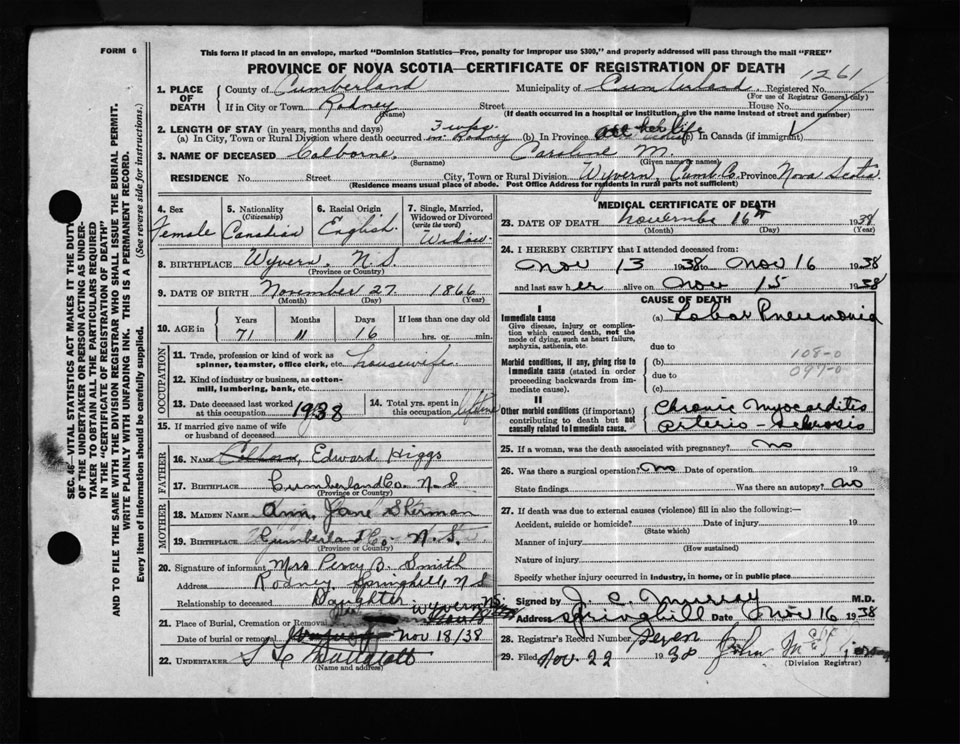 FORM 6
This form if placed in an envelope, marked "Dominion Statistics—Free, penalty for improper use $300," and properly addressed will pass through the mail "FREE"
PROVINCE OF NOVA SCOTIA—CERTIFICATE OF REGISTRATION OF DEATH
1261
1. PLACE OF DEATH
County of Cumberland Municipality of Cumberland Registered No.
(For use of Registrar General only)
If in City or Town Rodney Street House No.
(Name) (If death occurred in a hospital or institution, give the name instead of street and number)
2. LENGTH OF STAY (in years, months and days)
(a) In City, Town or Rural Division where death occurred 3 wks. in Rodney (b) In Province all her life (c) In Canada (if immigrant)
3. NAME OF DECEASED Colborne, Caroline M.
(Surname) (Given name or names)
RESIDENCE No. Street City, Town or Rural Division Wyvern, Cumb. Co. Province Nova Scotia
(Residence means usual place of abode. Post Office Address for residents in rural parts not sufficient)
4. Sex Female
5. Nationality (Citizenship) Canadian
6. Racial Origin English
7. Single, Married, Widowed or Divorced (write the word) Widow
8. BIRTHPLACE Wyvern, N.S.
(Province or Country)
9. DATE OF BIRTH November 27 1866
(Month) (Day) (Year)
10. AGE in Years Months Days If less than one day old
71 11 16 hrs. or min.
OCCUPATION
11. Trade, profession or kind of work as spinner, teamster, office clerk, etc. housewife
12. Kind of industry or business, as cotton-mill, lumbering, bank, etc.
13. Date deceased last worked at this occupation 1938
14. Total yrs. spent in this occupation lifetime
15. If married give name of wife or husband of deceased
FATHER
16. NAME Edward Higgs
17. BIRTHPLACE Cumberland Co. N.S
(Province or Country)
MOTHER
18. MAIDEN NAME Ann Jane Sherman
19. BIRTHPLACE Cumberland Co. N.S.
(Province or Country)
20. Signature of informant Mrs Percy B. Smith
Address Rodney Springhill, N S
Relationship to deceased Daughter
21. Place of Burial, Cremation or Removal Wyvern N.S.
Date of burial or removal Nov 18/38
22. UNDERTAKER
(Name and address)
MEDICAL CERTIFICATE OF DEATH
23. DATE OF DEATH November 16th 1938
(Month) (Day) (Year)
24. I HEREBY CERTIFY that I attended deceased from:
Nov 13 1938 to Nov 16 1938
and last saw her alive on Nov 15 1938
CAUSE OF DEATH
I
Immediate cause
Give disease, injury or complication which caused death, not the mode of dying, such as heart failure, asphyxia, asthenia, etc.
(a) Lobar Pneumonia
due to
108-0
Morbid conditions, if any, giving rise to immediate cause (stated in order proceeding backwards from immediate cause).
(b)
due to
097-0
(c)
II
Other morbid conditions (if important) contributing to death but not causally related to immediate cause.
Chronic Myocarditis
Arterio-Sclerosis
25. If a woman, was the death associated with pregnancy? No
26. Was there a surgical operation? No Date of operation 19
State findings Was there an autopsy? No
27. If death was due to external causes (violence) fill in also the following:—
Accident, suicide or homicide? Date of injury 19
(State which)
Manner of injury
(How sustained)
Nature of injury
Specify whether injury occurred in industry, in home, or in public place
Signed by J. C. Murray M.D.
Address Springhill Date Nov 16 1938
28. Registrar's Record Number Seven
29. Filed Nov. 22 1938 John
(Division Registrar)
SEC. 46—VITAL STATISTICS ACT MAKES IT THE DUTY OF THE UNDERTAKER OR PERSON ACTING AS UNDERTAKER TO OBTAIN ALL THE PARTICULARS REQUIRED IN THE "CERTIFICATE OF REGISTRATION OF DEATH"
AND TO FILE THE SAME WITH THE DIVISION REGISTRAR WHO SHALL ISSUE THE BURIAL PERMIT.
WRITE PLAINLY WITH UNFADING INK. THIS IS A PERMANENT RECORD.
Every item of information should be carefully supplied. (See reverse side for instructions.)